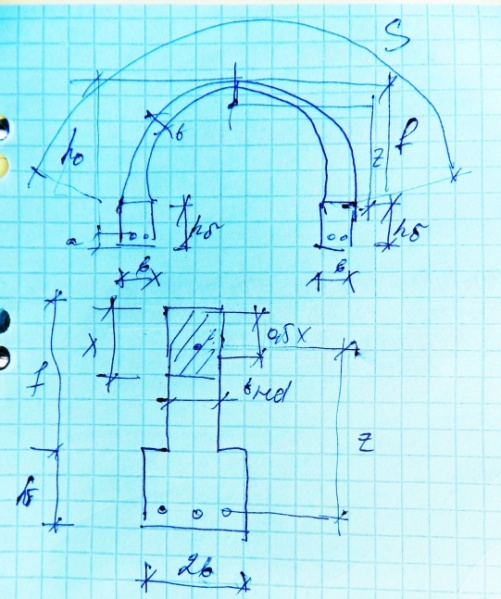 S
h₀
б
z
f
a
hб
hб
b
b
f
x
0,5x
b red
z
hб
2b